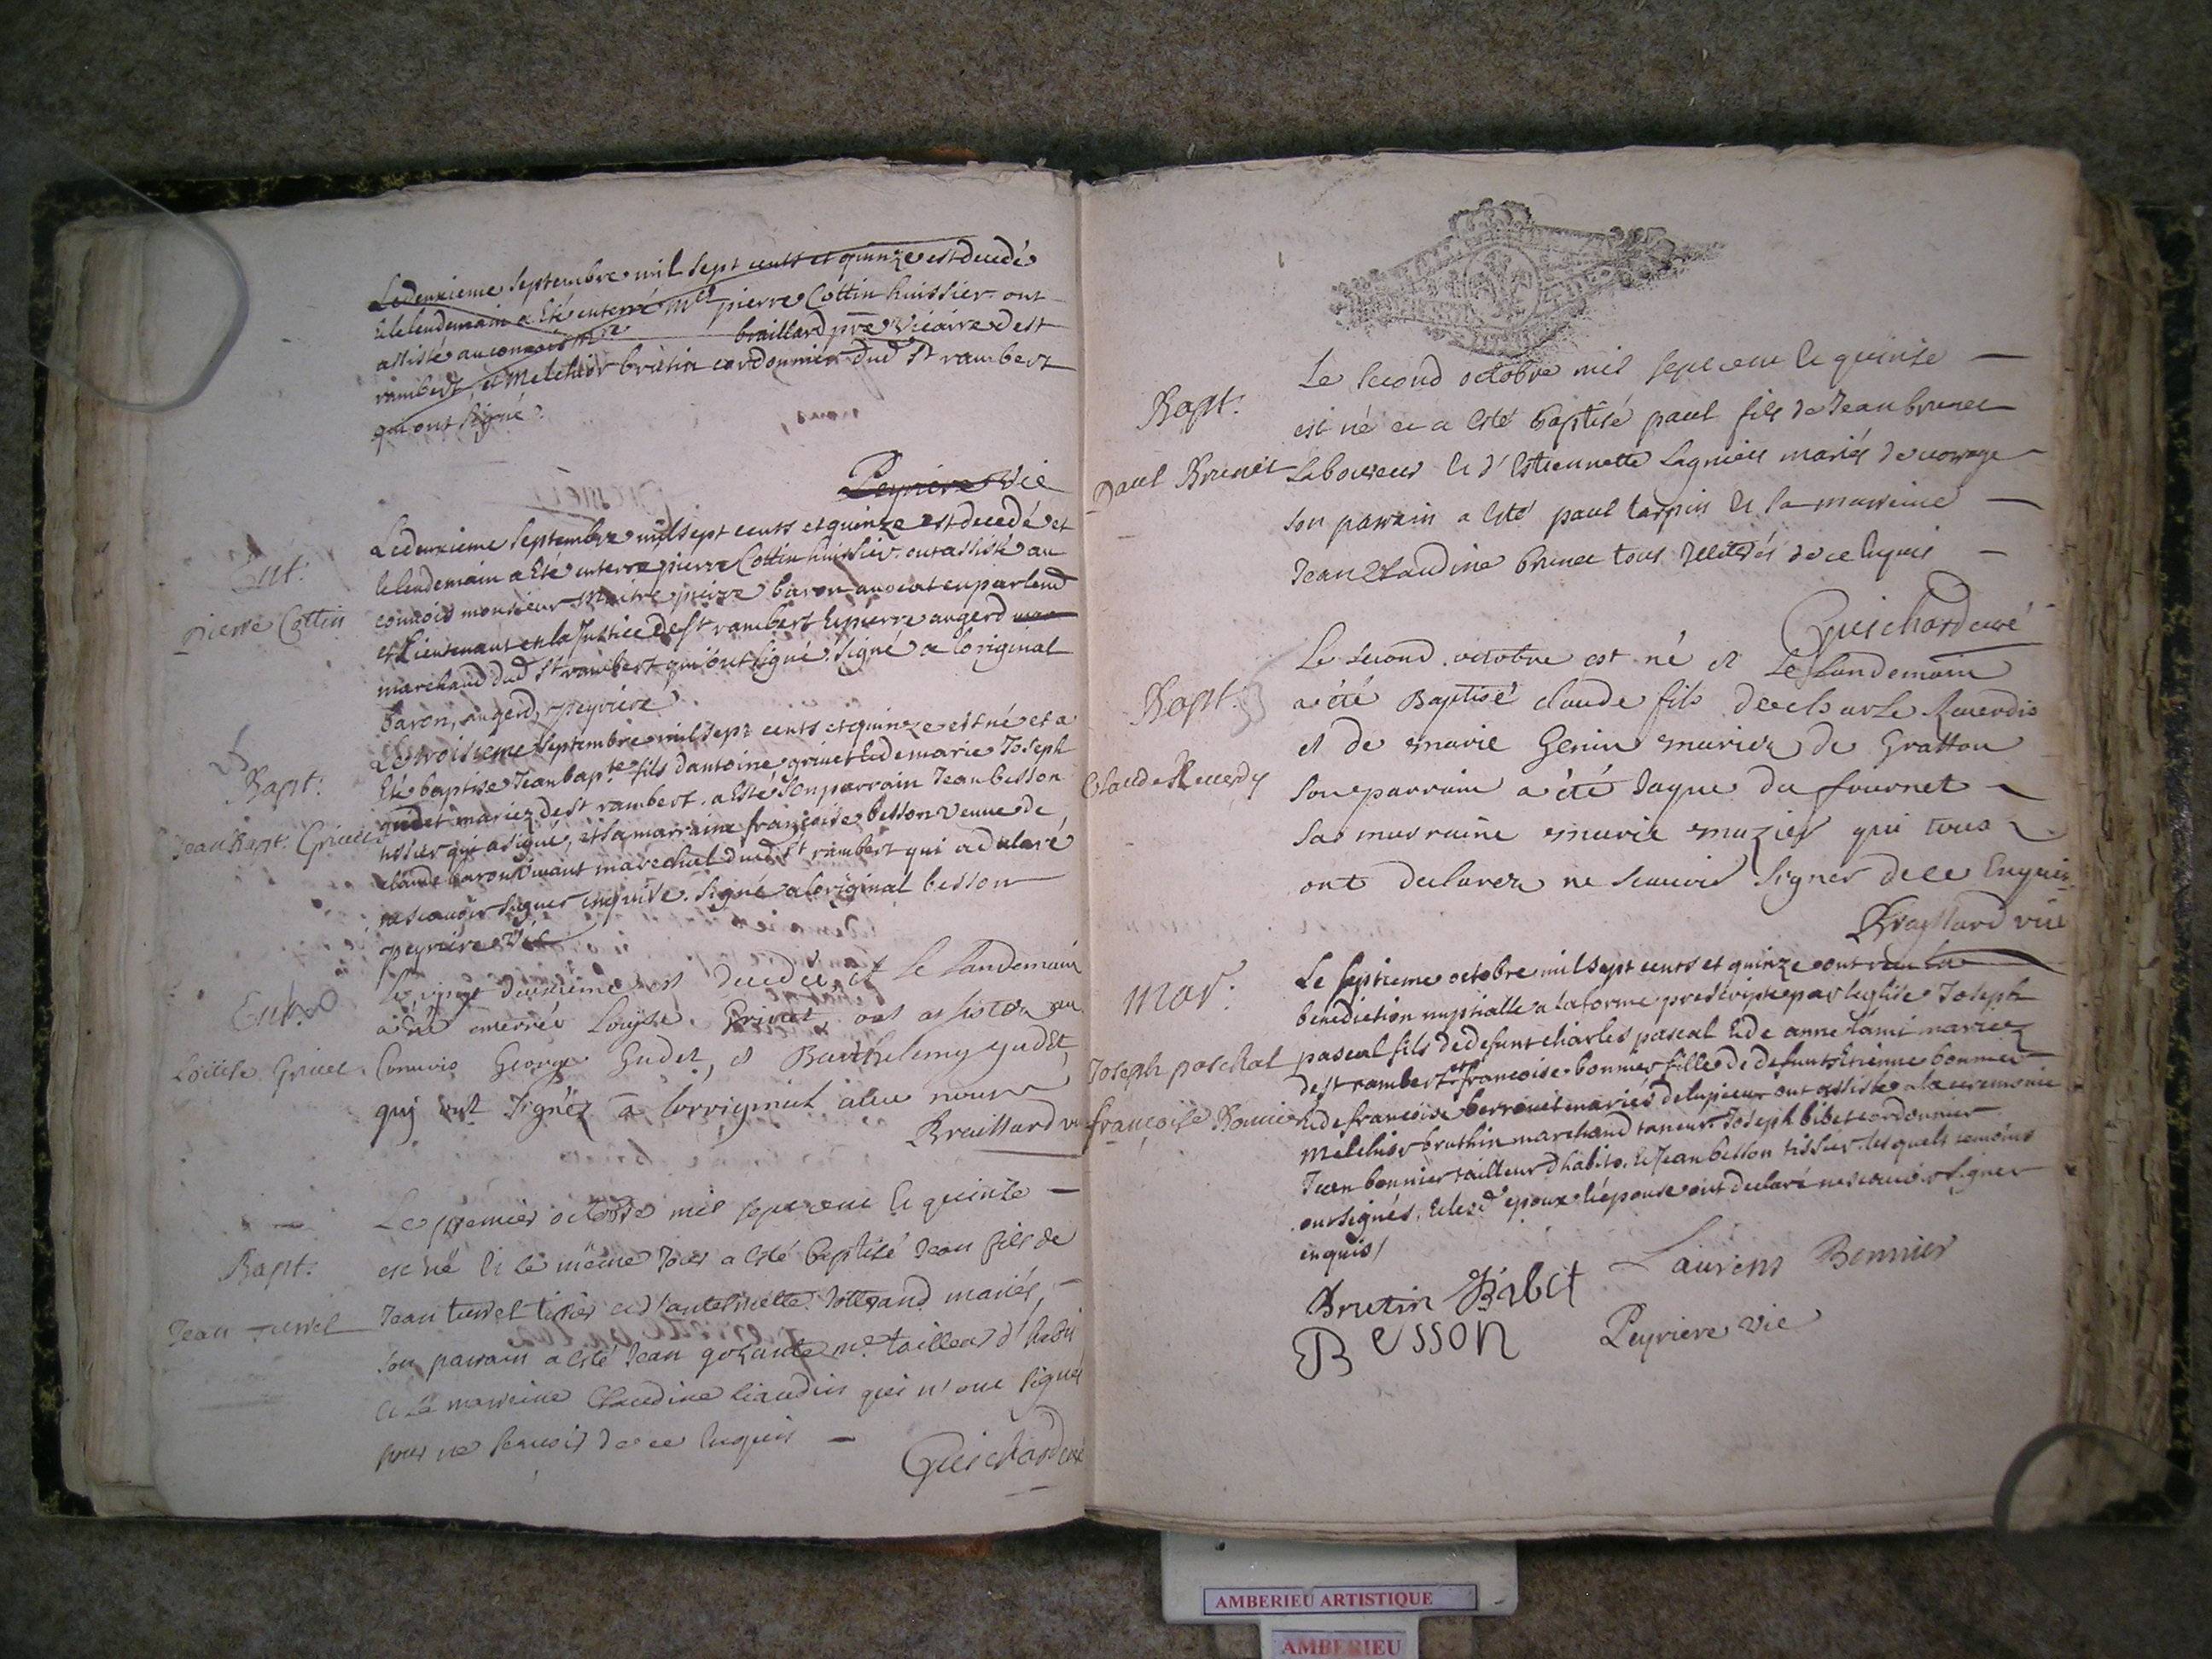 Le deuxieme Septembre mil Sept cents et quinze est decedé
et le lendemain a Eté enterré Mre pierre Cottin huissier ont
assisté au convois Mre braillard pre vicaire dest
rambert et Melchior brutin cordonnier dud St rambert
qui ont signé.
Peyriere vic
Ent.
pierre Cottin
Le deuxieme Septembre mil sept cents et quinze est decedé et
le lendemain a Eté enterre pierre Cottin huissier. ont assisté au
convois monsieur Maitre pierre baron avocat en parlend
et Lieutenant en la Justice de St rambert et pierre augerd
marchand dud St rambert qui ont signé. Signé a loriginal
baron, augerd, peyriere
Bapt.
Jean Bapt. Grivet
Le troisieme Septembre mil sept cents et quinze est né et a
Eté baptise Jean bapte fils dantoine grivet et de marie Joseph
gudet mariez de st rambert. a Esté son parrain Jean besson
tissier qui a signé, et sa marraine françoise besson veuve de
claude baron vivant marechal dud St rambert qui a declaré
ne scavoir signer enquise. Signé a loriginal besson
peyriere vic
Ent.
Loüise Grivet
le vingt deuxieme est decedée et le landemain
a été enterrée Louyse Grivat, ont assister au
Convois George Gudet, et Barthelemy gudet,
quj ont signéz a lorriginal avec nous
Braillard vi
Bapt.
Jean Turrel
Le premier octobre mil sept cent et quinse
est né et le même Jour a esté baptisé Jean fils de
Jean turrel tissier et d'antelmette mariés,
son parrain a esté Jean me. tailleur d'habis
et la marreine Claudine liaudin qui n'ont signé
pour ne scavoir de ce enquis
Guichard curé
Bapt.
Paul Brunet
Le second octobre mil sept cent et quinse
est né et a esté baptisé paul fils de Jean brunet
laboureur et d'Estiennette Lagnieu mariés de
son parrain a esté paul tarpin et la marreine
Jean Claudine brunet tous de ce enquis
Guichard curé
Bapt.
Claude Reverdy
Le second octobre est né et Le Landemain
a été Baptisé claude fils de charle Reverdis
et de marie Genin mariez de Gratton
son parrain a été Jaque du fournet
sa marraine marie mazier qui tous
ont declarez ne scavoir signer de ce Enquis
Brayllard vic
Mar.
Joseph paschal
françoise Bonnier
Le septieme octobre mil sept cents et quinze ont
benediction nuptialle a la forme prescripte par leglise Joseph
pascal fils de defunt charles pascal et de anne lami mariez
de st rambert et françoise bonnier fille de defunt Etienne bonnier
et de françoise mariés delupieu ont assisté a la ceremonie
Melchior bruthin marchand taneur Joseph bibet cordonnier
Jean bonnier tailleur d'habits, et Jean besson tissier lesquels temoins
ont signés, et lesd epoux et épouse ont declaré ne scavoir signer
enquis
Brutin Bibet Laurens Bonnier
Besson Peyriere vic
AMBERIEU ARTISTIQUE
AMBERIEU